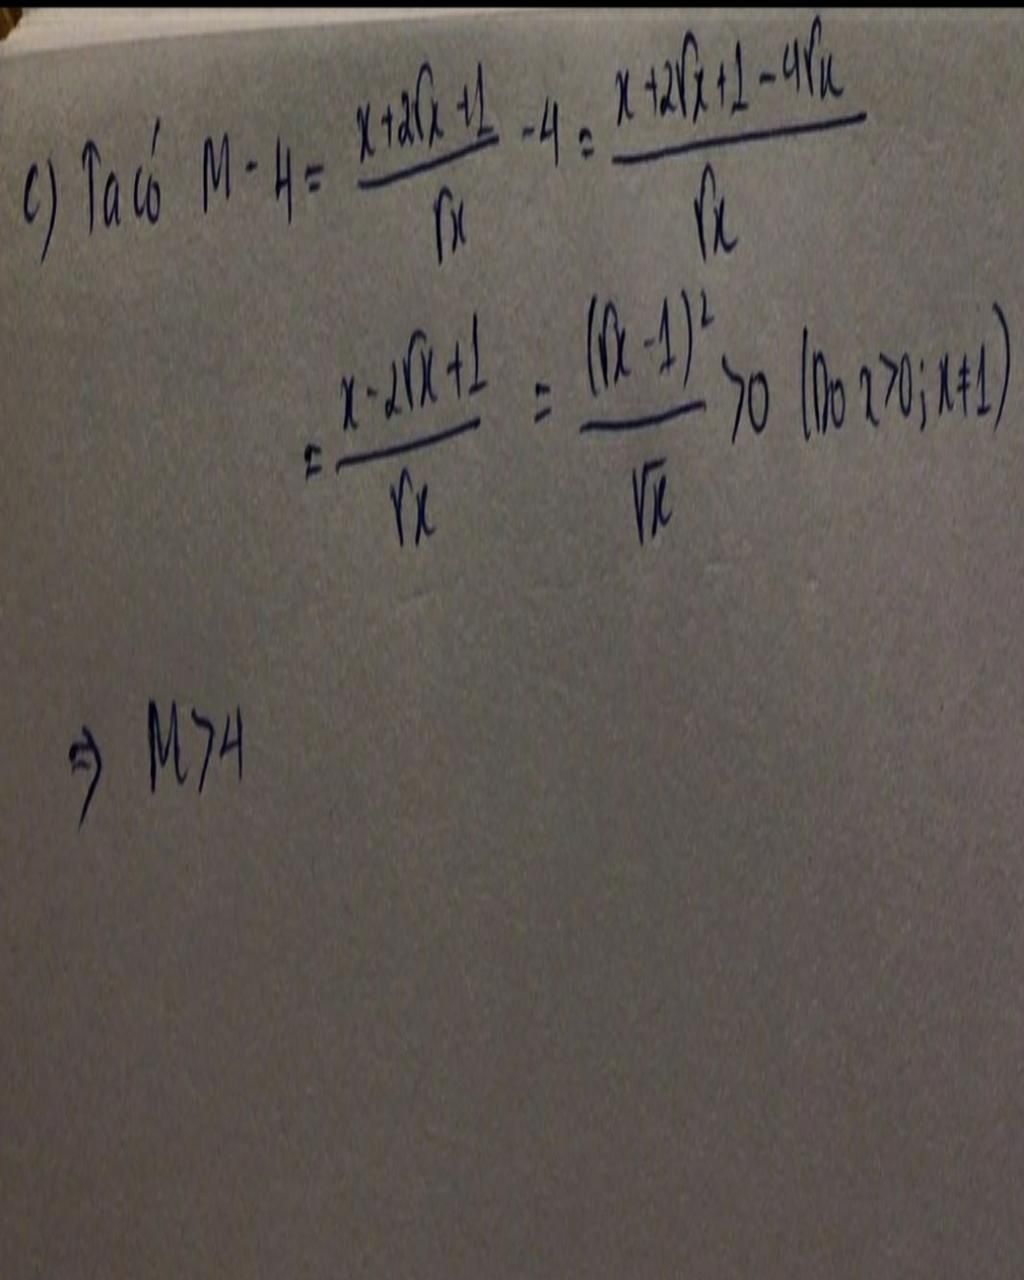 c) Ta có M - 4 = (x+2√x+1)/√x - 4 = (x+2√x+1-4√x)/√x
= (x-2√x+1)/√x = (√x-1)²/√x >0 (Do x>0; x≠1)
⇒ M>4